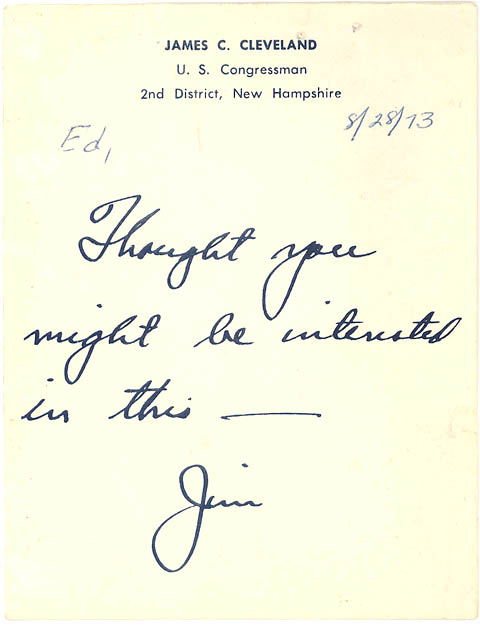 JAMES C. CLEVELAND
U. S. Congressman
2nd District, New Hampshire
8/28/73
Ed,
Thought you
might be interested
in this —
Jim